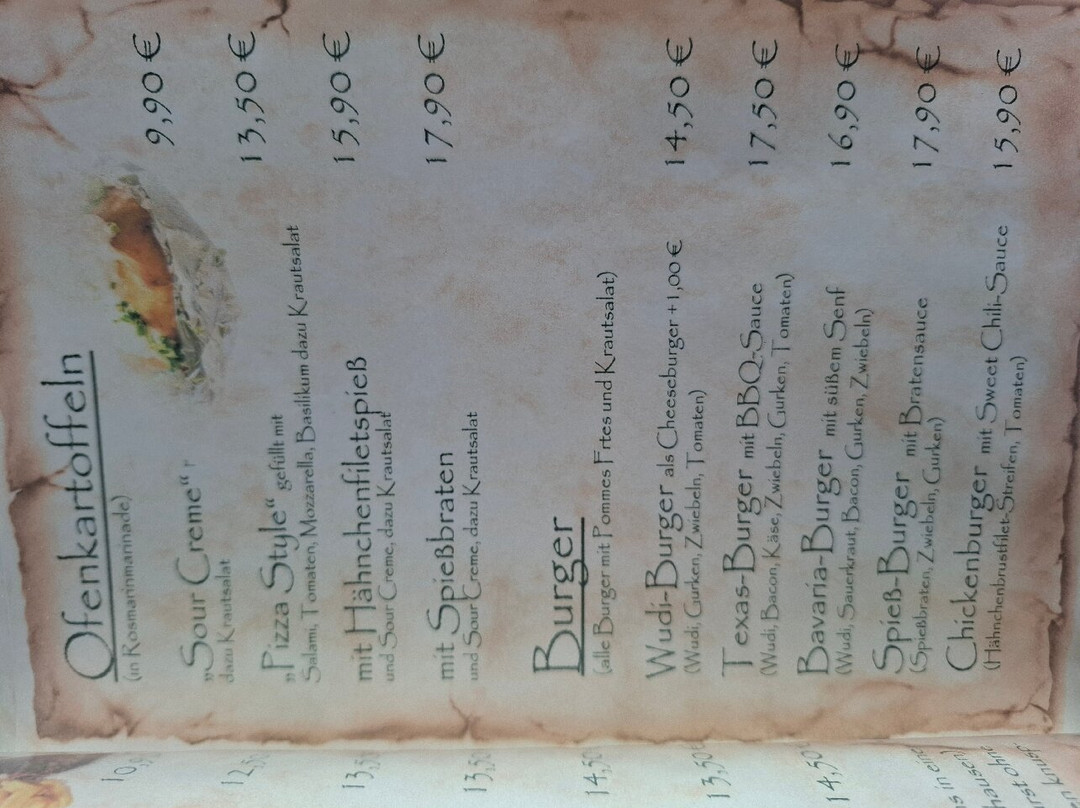 Ofenkartoffeln
(in Rosmarinmarinade)
„Sour Creme“ 9,90 €
dazu Krautsalat
„Pizza Style“ gefüllt mit 13,50 €
Salami, Tomaten, Mozzarella, Basilikum dazu Krautsalat
mit Hähnchenfiletspieß 15,90 €
und Sour Creme, dazu Krautsalat
mit Spießbraten 17,90 €
und Sour Creme, dazu Krautsalat
Burger
(alle Burger mit Pommes Frtes und Krautsalat)
Wudi-Burger als Cheeseburger +1,00 € 14,50 €
(Wudi, Gurken, Zwiebeln, Tomaten)
Texas-Burger mit BBQ-Sauce 17,50 €
(Wudi, Bacon, Käse, Zwiebeln, Gurken, Tomaten)
Bavaria-Burger mit süßem Senf 16,90 €
(Wudi, Sauerkraut, Bacon, Gurken, Zwiebeln)
Spieß-Burger mit Bratensauce 17,90 €
(Spießbraten, Zwiebeln, Gurken)
Chickenburger mit Sweet Chili-Sauce 15,90 €
(Hähnchenbrustfilet-Streifen, Tomaten)
10,9
12,50
13,5
13,5
14,50
13,50
14,50
s in eine
hausen)
rst ohne